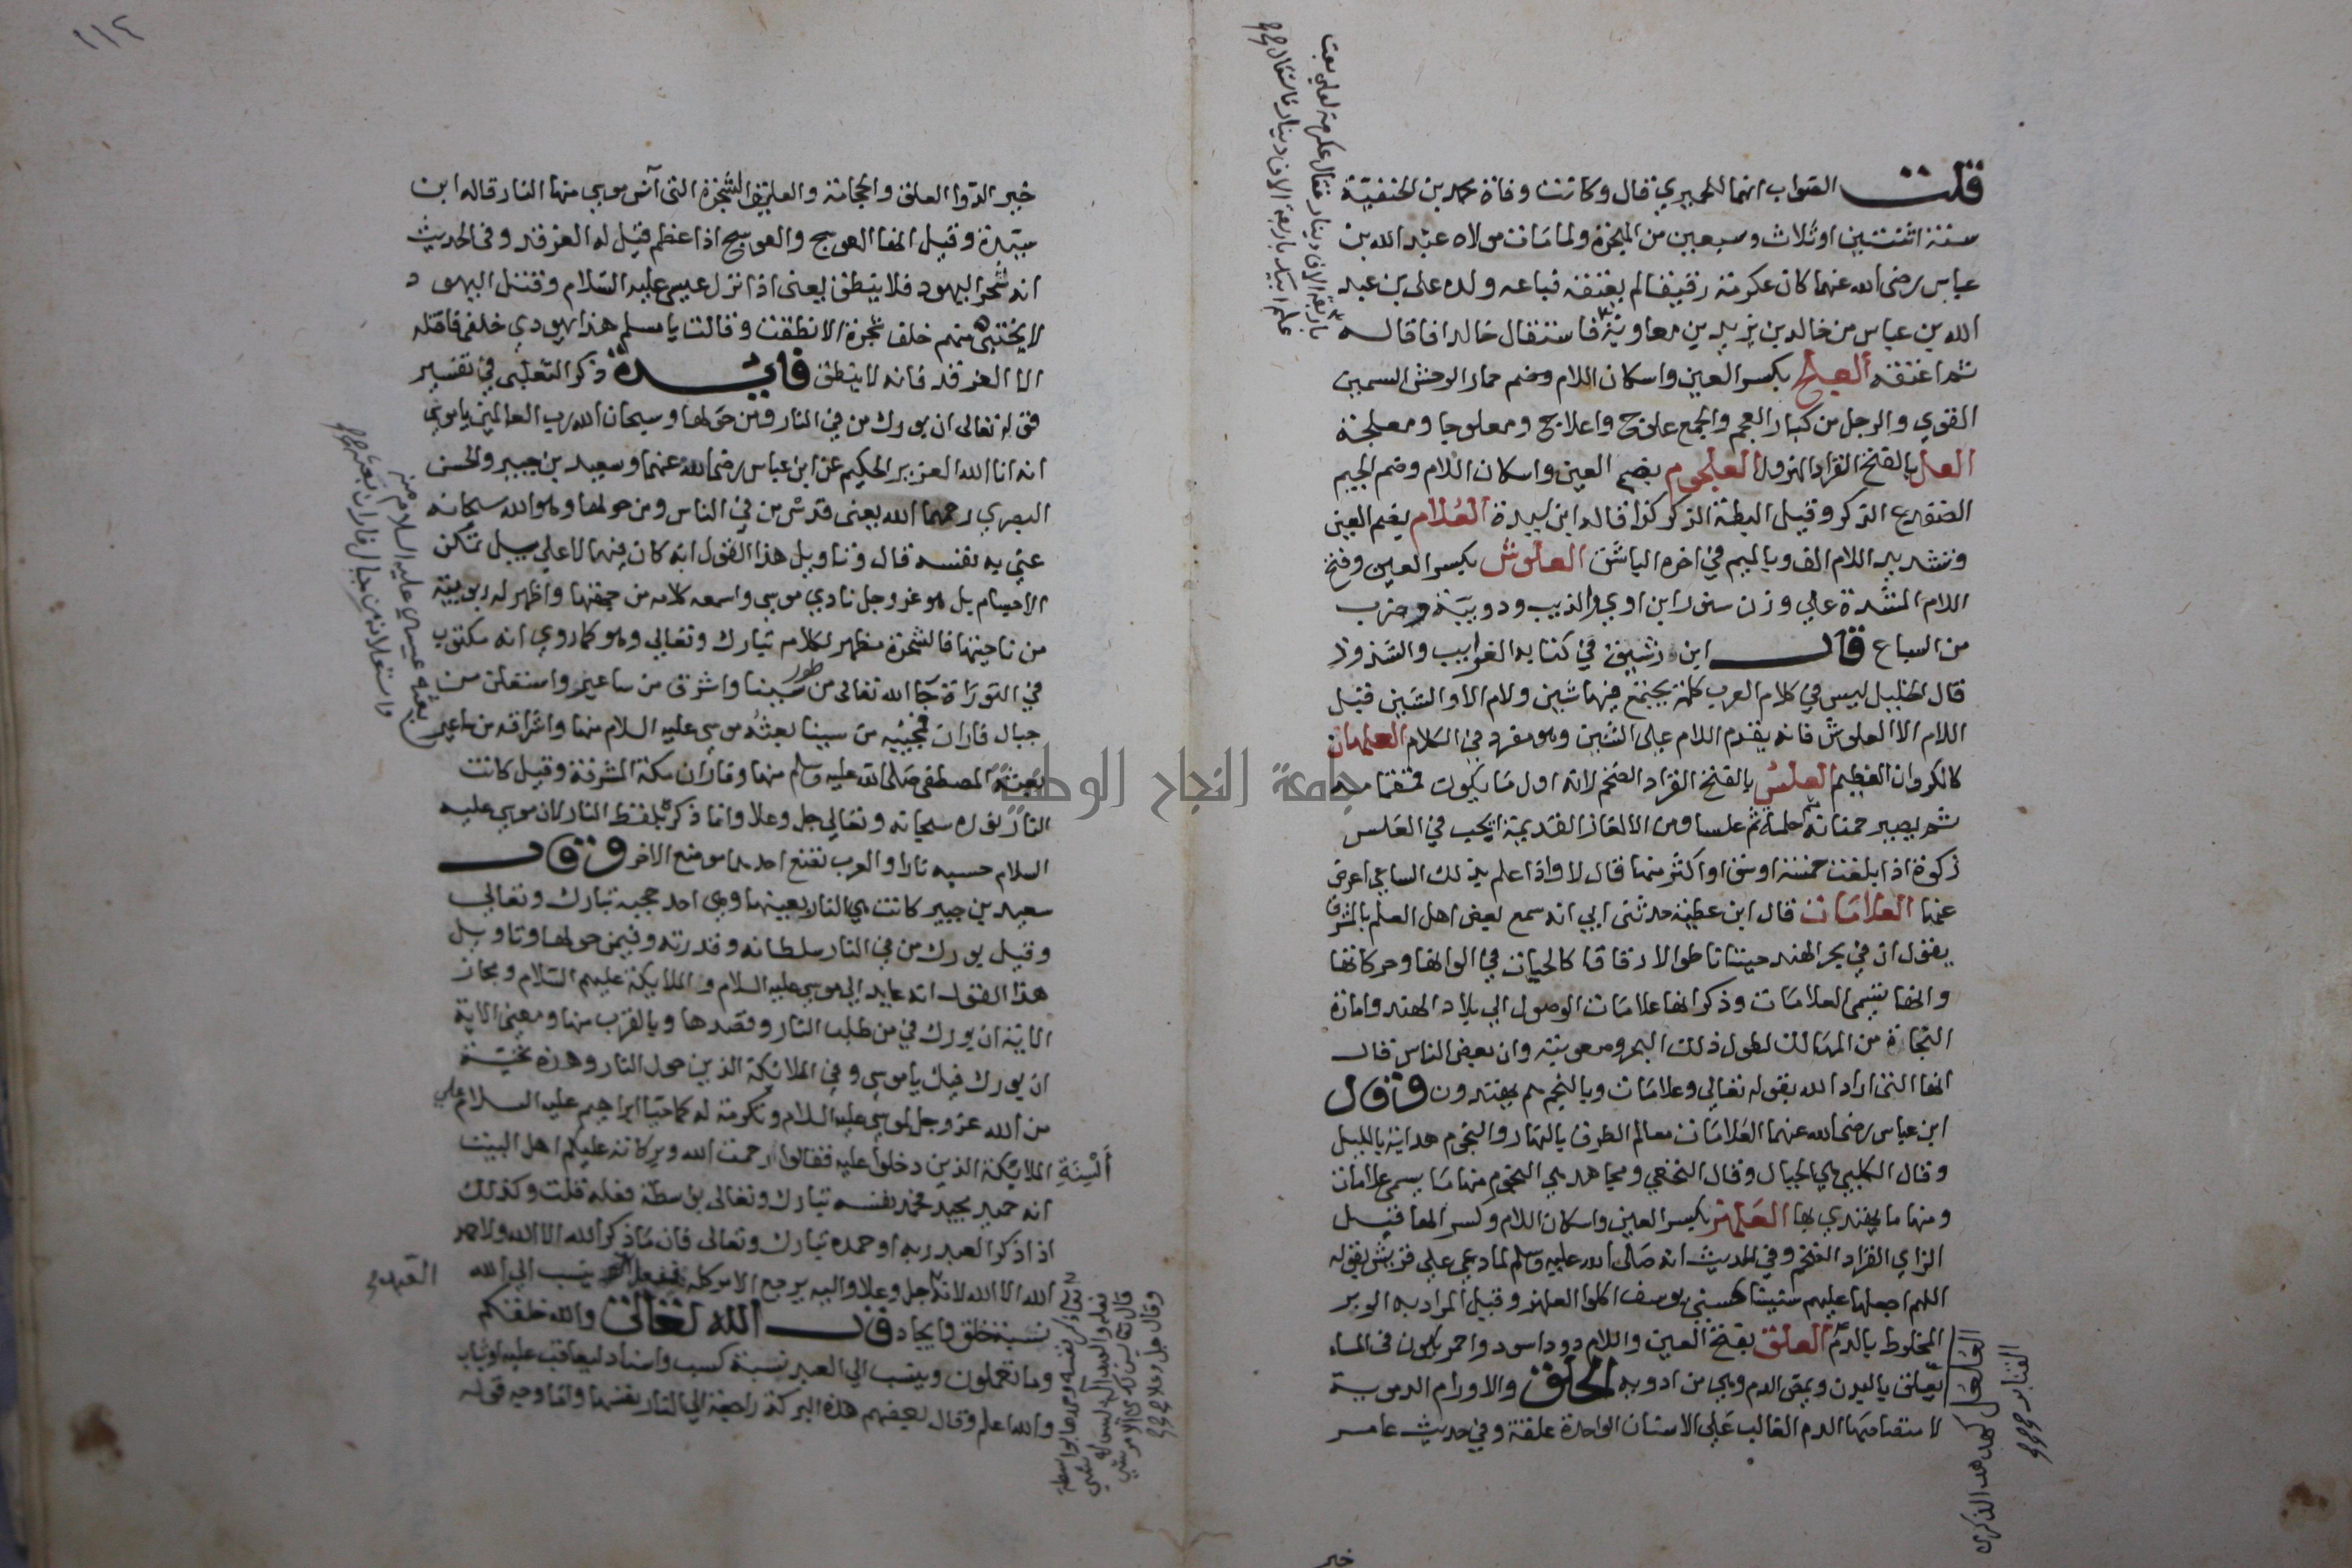 قلت الصواب انها للحميري قال وكانت وفاة محمد بن الحنفية
سنة اثنتين او ثلاث وسبعين من الهجرة ولما مات مولاه عبد الله بن
عباس رضى الله عنهما كان عكرمة رقيقا لم يعتقه فباعه ولده على بن عبد
الله بن عباس من خالد بن يزيد بن معاوية فاستقال خالدا فاقاله
ثم اعتقه العلج بكسر العين واسكان اللام وضم حمار الوحش السمين
القوي والرجل من كبار العجم والجمع علوج واعلاج ومعلوجا ومعلجة
العل بالفتح القراد المهزول العلجوم بضم العين واسكان اللام وضم الجيم
الضفدع الذكر وقيل البطة الذكر كذا قاله ابن سيدة العلام بضم العين
وتشديد اللام الف وبالميم في اخره الباشق العلوش بكسر العين وفتح
اللام المشددة على وزن سنور ابن اوي والذيب ودويبة وضرب
من السباع قال ابن رشيق في كتابه الغرايب والشذوذ
قال الخليل ليس في كلام العرب كلمة يجتمع فيها شين ولام الا والشين قبل
اللام الا العلوش فانه يقدم اللام على الشين وهو مفرد في الكلام العلهان
كالكروان الظليم العلس بالفتح القراد الضخم لانه اول ما يكون قمقامه
ثم يصير حمنانة ثم حلمة ثم علسا ومن الالغاز القديمة ايجب في العلس
زكوة اذا بلغت خمسة اوسق او اكثر منها قال لا واذا علم بذلك الساعي اعرض
عنها العلامات قال ابن عطية حدثنى ابي انه سمع بعض اهل العلم بالمشرق
يقول ان في بحر الهند حيتانا طوالا رقاقا كالحيات في الوانها وحركاتها
وانها تسمى العلامات وذكر انها علامات الوصول الى بلاد الهند وامارة
النجاة من المهالك لطول ذلك البحر وصعوبته وان بعض الناس قال
انها التى اراد الله بقوله تعالى وعلامات وبالنجم هم يهتدون وقال
ابن عباس رضى الله عنهما العلامات معالم الطرق بالنهار والنجوم هداية بالليل
وقال الكلبي هي الجبال وقال النخعي ومجاهد هي النجوم منها ما يسمى علامات
ومنها ما يهتدي بها العلهز بكسر العين واسكان اللام وكسر الهاء قبل
الزاي القراد الضخم وفي الحديث انه صلى الله عليه وسلم لما دعى على قريش بقوله
اللهم اجعلها عليهم سنينا كسني يوسف اكلوا العلهز وقيل المراد به الوبر
المخلوط بالدم العلق بفتح العين واللام دود اسود واحمر يكون في الماء
يعلق بالبدن ويمص الدم وهي من ادوية الحلق والاورام الدموية
لامتصاصها الدم الغالب على الانسان الواحدة علقة وفي حديث عامر
خير
باربعة الاف دينار فقال عكرمة لعلي بعت
علم ابيك باربعة الاف دينار فاستقال
العلعل كهدهد الذكر من
القنابر
١١٤
خير الدوا العلق والحجامة والعليق الشجرة التى آنس موسي منها النار قاله ابن
سيدة وقيل انها العوسج والعوسج اذا عظم قيل له الغرقد وفي الحديث
انه شجر اليهود فلا ينطق يعنى اذا نزل عيسى عليه السلام وقتل اليهود
لا يختبى منهم خلف شجرة الا نطقت وقالت يا مسلم هذا يهودي خلفي فاقتله
الا الغرقد فانه لا ينطق فايدة ذكر الثعلبى في تفسير
قوله تعالى ان بورك من في النار ومن حولها وسبحان الله رب العالمين يا موسي
انه انا الله العزيز الحكيم عن ابن عباس رضى الله عنهما وسعيد بن جبير والحسن
البصري رحمهما الله يعنى قدس من في الناس ومن حولها وهو الله سبحانه
عني به نفسه قال وتاويل هذا القول انه كان فيها لا على سبيل تمكن
الاجسام بل هو عز وجل نادي موسي واسمعه كلامه من جهتها واظهر له ربوبيته
من ناحيتها فالشجرة مظهر لكلام تبارك وتعالي وهو كما روي انه مكتوب
في التوراة جا الله تعالى من طور سينا واشرق من ساعير واستعلن من
جبال فاران فمجيئه من سينا بعثه موسي عليه السلام منها واشراقه من ساعير
بعثه المصطفى صلى الله عليه وسلم منها وفاران مكة المشرفة وقيل كانت
النار نوره سبحانه وتعالي جل وعلا وانما ذكره بلفظ النار لان موسي عليه
السلام حسبه نارا والعرب تضع احدهما موضع الاخر وقال
سعيد بن جبير كانت هي النار بعينها وهي احد حجبه تبارك وتعالي
وقيل بورك من في النار سلطانه وقدرته وفيمن حولها وتاويل
هذا القول انه عايد الي موسي عليه السلام والملايكة عليهم السلام ومجاز
الاية ان بورك في من طلب النار وقصدها وبالقرب منها ومعنى الاية
ان بورك فيك يا موسي وفي الملائكة الذين حول النار وهذه تحية
من الله عز وجل لموسي عليه السلام وتكرمة له كما حيا ابراهيم عليه السلام على
أَلْسِنَةِ الملائكة الذين دخلوا عليه فقالوا رحمت الله وبركاته عليكم اهل البيت
انه حميد مجيد فحمد نفسه تبارك وتعالى بواسطة فعله قلت وكذلك
اذا ذكر العبد ربه او حمده تبارك وتعالى فان ما ذكر الله الا الله ولا حمد
الله الا الله لانه جل وعلا واليه يرجع الامر كله ينسب الى الله
نسبة خلق وايجاد قال الله تعالى والله خلقكم
وما تعملون وينسب الي العبد نسبة كسب واسناد ليعاقب عليه او يثاب
والله اعلم وقال بعضهم هذه البركة راجعة الي النار نفسها واما وجه قوله
بعثه عيسي عليه السلام منه
واستعلانه من جبال فاران بعثه
جامعة النجاح الوطنية